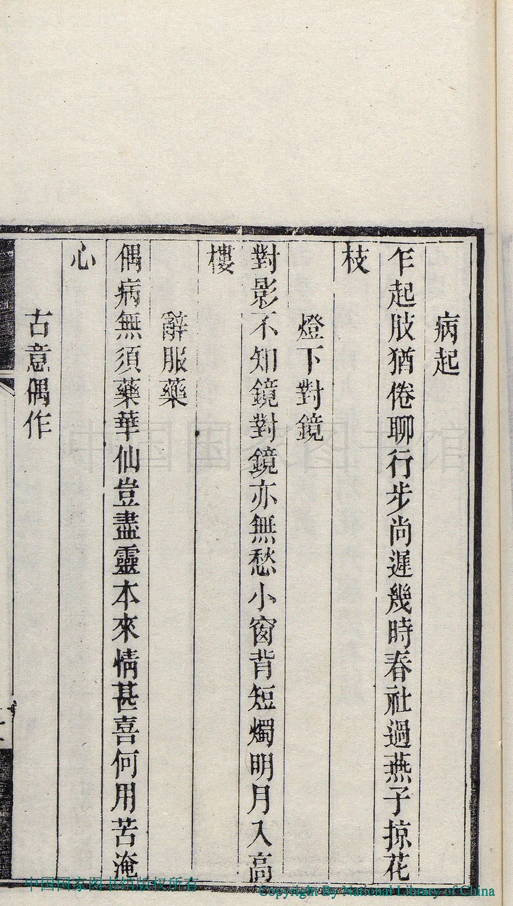 病起
乍起肢猶倦聊行步尚遲幾時春社過燕子掠花
枝
燈下對鏡
對影不知鏡對鏡亦無愁小窗背短燭明月入高
樓
辭服藥
偶病無須藥華仙豈盡靈本來情甚喜何用苦淹
心
古意偶作
中国国家图书馆
中国国家图书馆版权所有
Copyright By National Library of China